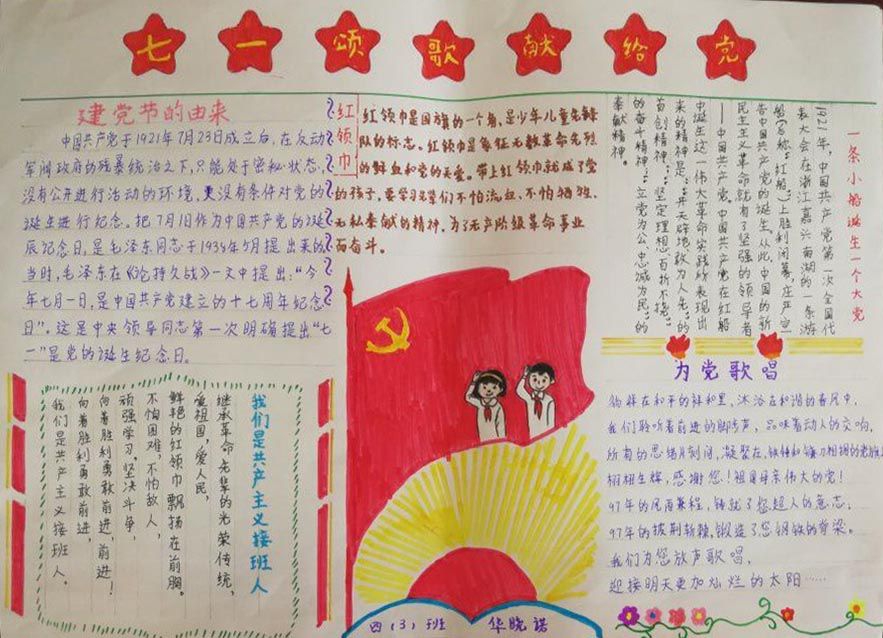 七一颂歌献给党
建党节的由来
中国共产党于1921年7月23日成立后,在反动
军阀政府的残暴统治之下,只能处于密秘状态,
没有公开进行活动的环境,更没有条件对党的
诞生进行纪念。把7月1日作为中国共产党的诞
辰纪念日,是毛泽东同志于1938年5月提出来的
当时,毛泽东在《论持久战》一文中提出:“今
年七月一日,是中国共产党建立的十七周年纪念
日”。这是中央领导同志第一次明确提出“七
一”是党的诞生纪念日。
红领巾
红领巾是国旗的一个角,是少年儿童先锋
队的标志。红领巾是象征无数革命先烈
的鲜血和党的关爱。带上红领巾就成了党
的孩子,要学习先辈们不怕流血、不怕牺牲、
无私奉献的精神,为了无产阶级革命事业
而奋斗。
一条小船诞生一个大党
1921年,中国共产党第一次全国代
表大会在浙江嘉兴南湖的一条游
船(后称“红船”)上胜利闭幕,庄严宣
告中国共产党的诞生,从此中国的新
民主主义革命就有了坚强的领导者
——中国共产党。中国共产党在红船
中诞生这一伟大革命实践所表现出
来的精神是:“开天辟地、敢为人先”的
首创精神;“坚定理想、百折不挠”
的奋斗精神;“立党为公、忠诚为民”的
奉献精神。
我们是共产主义接班人
我们是共产主义接班人
继承革命先辈的光荣传统,
爱祖国,爱人民,
鲜艳的红领巾飘扬在前胸。
不怕困难,不怕敌人,
顽强学习,坚决斗争,
向着胜利勇敢前进,前进!
向着胜利勇敢前进,
我们是共产主义接班人。
为党歌唱
徜徉在和平的祥和里,沐浴在和谐的春风中,
我们聆听着前进的脚步声,品味着动人的交响,
所有的思绪片刻间,凝聚在,铁锤和镰刀相拥的党旗,
栩栩生辉,感谢您!祖国母亲伟大的党!
97年的风雨兼程,铸就了您超人的意志;
97年的披荆斩棘,锻造了您钢铁的脊梁。
我们为您放声歌唱,
迎接明天更加灿烂的太阳……
四(3)班 华晓诺